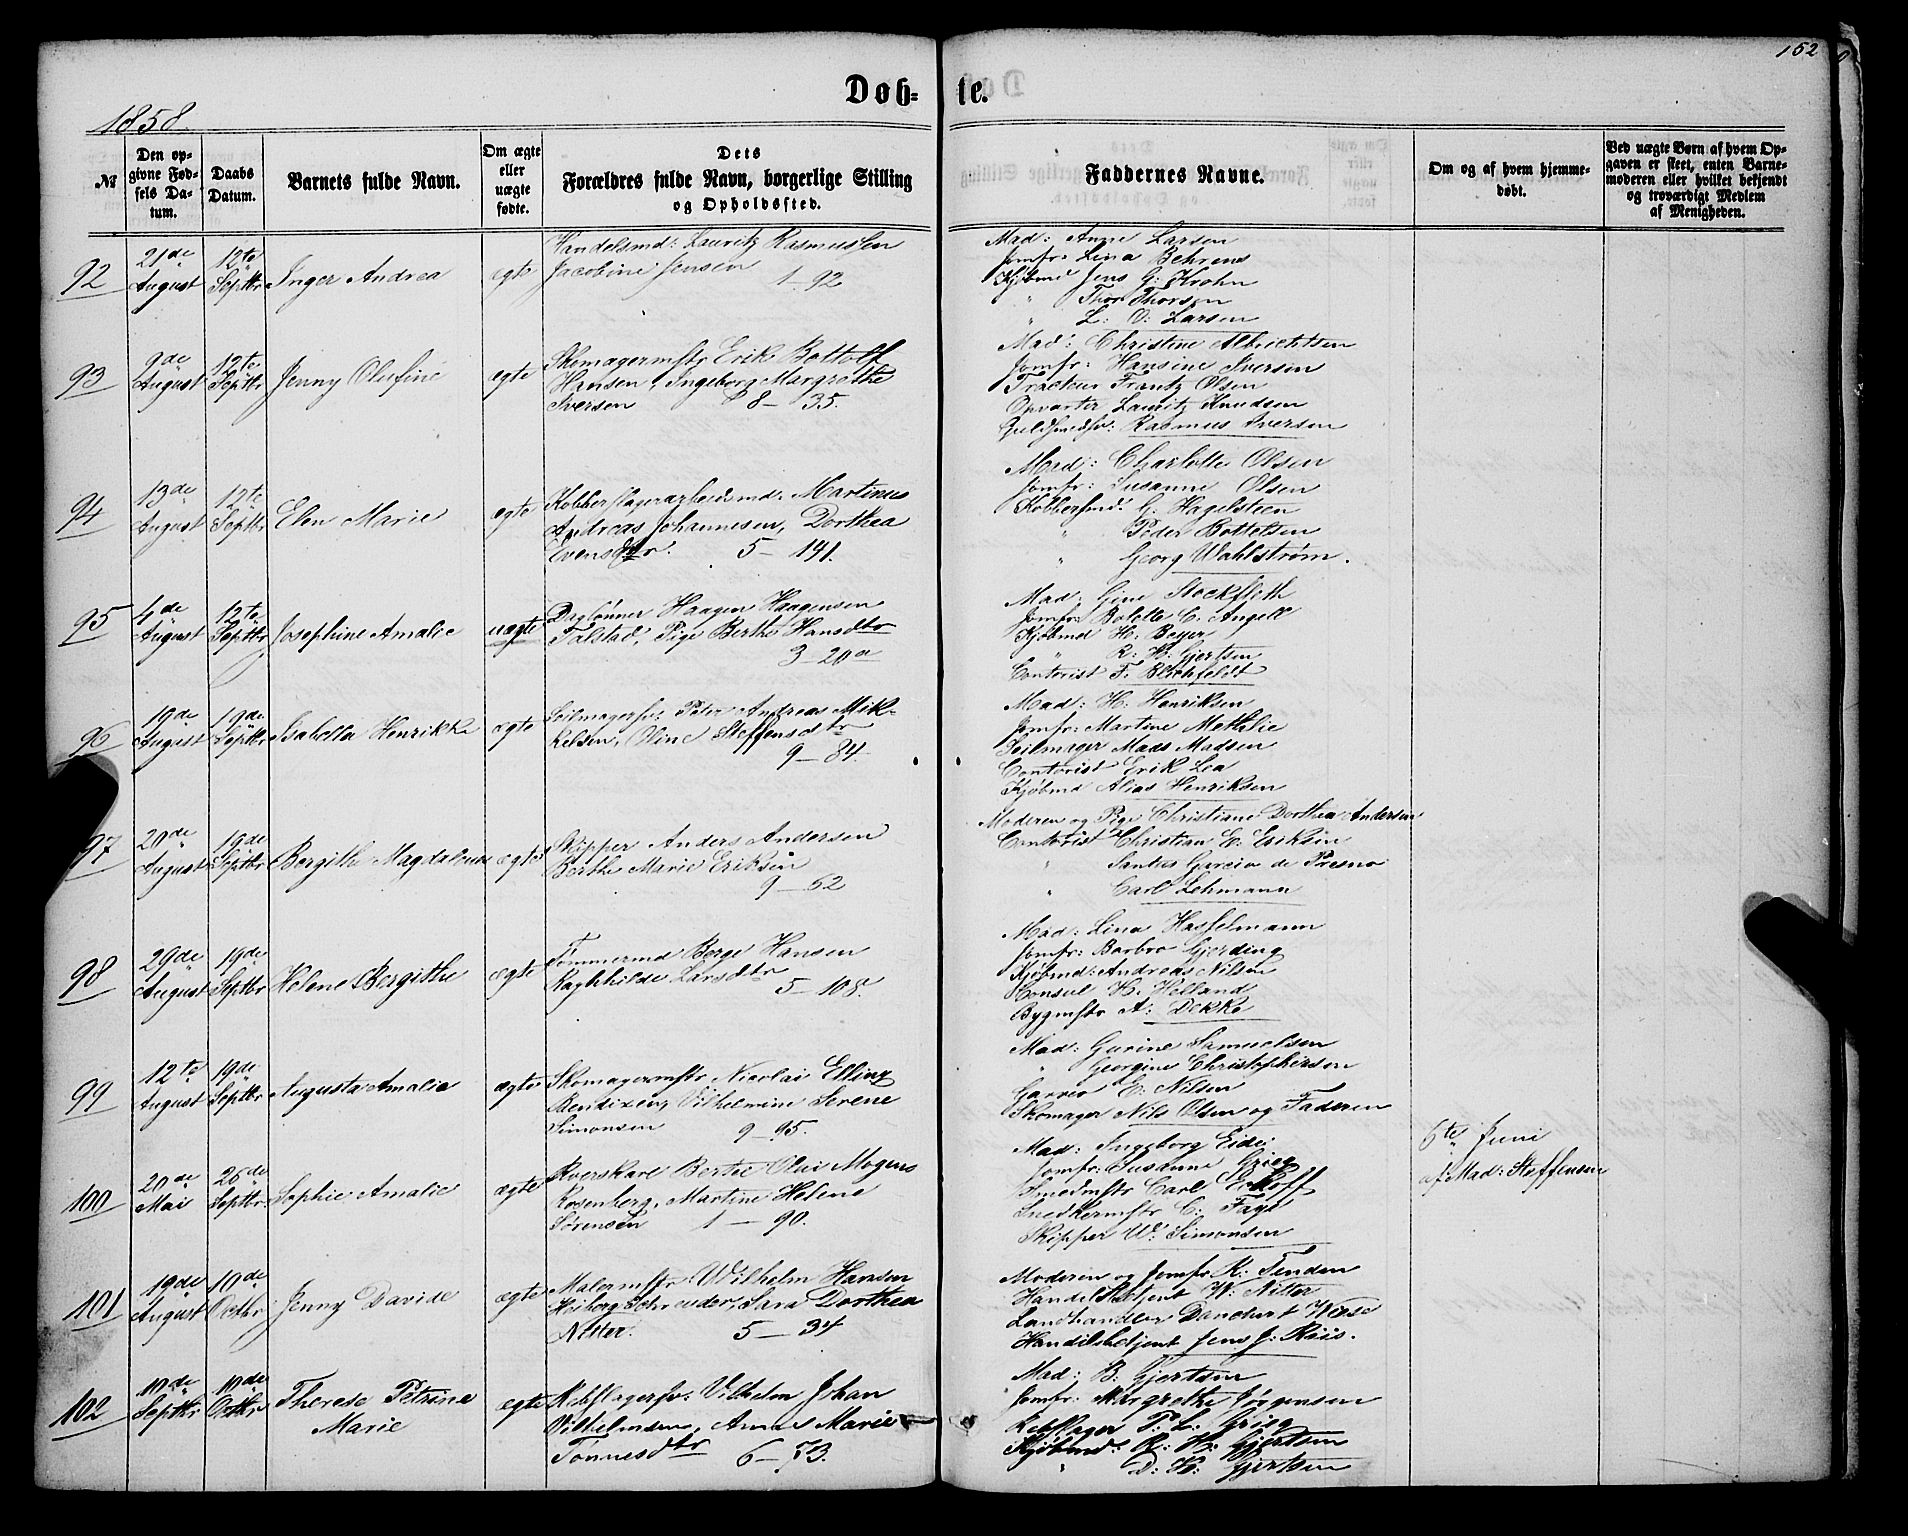 152
Døb=te.
1858.
№
Den opgivne Fødsels Datum.
Daabs Datum.
Barnets fulde Navn.
Om ægte eller uægte fødte.
Dets Forældres fulde Navn, borgerlige Stilling og Opholdssted.
Faddernes Navne.
Om og af hvem hjemmedøbt.
Ved uægte Børn af hvem Opgaven er skeet, enten Barnemoderen eller hvilket bekjendt og troværdigt Medlem af Menigheden.
92 21de August 12te Septbr Inger Andrea ægte Handelsmd: Lauritz Rasmussen
Jacobine Jensen
1 - 92
Mad: Anne Larsen
Jomfr: Lina Behrens
Kjøbmd Jens G: Krohn
" Thor Thorsen
" L: O: Larsen
93 9de August 12te Septbr Jenny Olufine ægte Skomagermstr Erik Bottolf
Hansen, Ingeborg Margrethe
Iversen 8 - 35.
Mad: Christine Albrichtsen
Jomfr: Hansine Iversen
Tracteur Frantz Olsen
Opvarter Lauritz Knudsen
Guldsmedsv: Rasmus Iversen
94 13de August 12te Septbr Elen Marie ægte Kobberslagerarbeidsmd: Martinus
Andreas Johannesen, Dorthea
Evensdtr. 5 - 141.
Mad: Charlotte Olsen
Jomfr: Susanne Olsen
Kobbersmd: G: Hagelsteen
" Peder Bottolsen
" Georg Wahlstrøm.
95 4de August 12te Septbr Josephine Amalie uægte Daglønner Haagen Haagensen
Falstad, Pige Berthe Hansdtr
3 - 20a
Mad: Gine Stockfleth
Jomfr: Bolette C. Angell
Kjøbmd H: Beyer
" R: H: Gjertsen
Contorist F. Blichfeldt
96 19de August 19de Septbr Isabella Henrikke ægte Seilmagersv: Peter Andreas Mikkelsen, Oline Steffensdtr
9 - 84.
Mad: H: Henriksen
Jomfr: Martine Mathilie
Seilmager Mads Madsen
Contorist Erik Lea
Kjøbmd Alias Henriksen
97 20de August 19de Septbr Bergith Magdalene ægte Skipper Anders Andersen
Berthe Marie Eriksen
9 - 62
Moderen og Pige Christiane Dorthea Andersen
Contorist Christian E. Eriksen
" Santus Garcia de Presno
" Carl Lehmann
98 29de August 19de Septbr Helene Bergithe ægte Tømmermd Berge Hansen
Raghnilde Larsdtr
5 - 108.
Mad: Lina Hasselmann
Jomfr: Barbro Gjerding
Kjøbmd: Andreas Nilsen
Consul H: Helland
Bygmstr A: Dekke
99 12te August 19de Septbr Augusta Amalia ægte Skomagermstr Nicolai Elling
Bendixen, Vilhelmine Serene
Simonsen 9 - 95.
Mad: Gurine Samuelsen
" Georgine Christophersen
Garver E: Nilsen
Skomager Nils Olsen og Faderen
100 20de Mai 26de Septbr Sophie Amalie ægte Kverskarl Berthe Olai Mogens
Rosenberg, Martine Helene
Sørensen 1 - 90.
Mad: Ingeborg Eide
Jomfr: Susanne Grieg
Smedmstr Carl Eckoff
Snedkermstr C: Faye
Skipper W: Simonsen
6te Juni
af Mad: Steffensen
101 19de August 10de Octbr Jenny Davide ægte Malermstr: Wilhelm Hansen
Heiberg Schreuder, Sara Dorthea
Nitter. 5 - 34
Moderen og Jomfr K: Tenden
Handelsbetjent W. Nitter
Landhandler Danchert Wiese
Handelsbetjent Jens J: Riis.
102 10de Septbr 10de Octbr Therese Petrine
Marie
ægte Rebslagersv: Vilhelm Johan
Vilhelmsen, Anne Marie
Tønnesdtr 6 - 53.
Mad: B: Gjertsen
Jomfr: Margrethe Jørgensen
Rebslager P: L: Grieg
Kjøbmd: R: H: Gjertsen
" D: H: Gjertsen